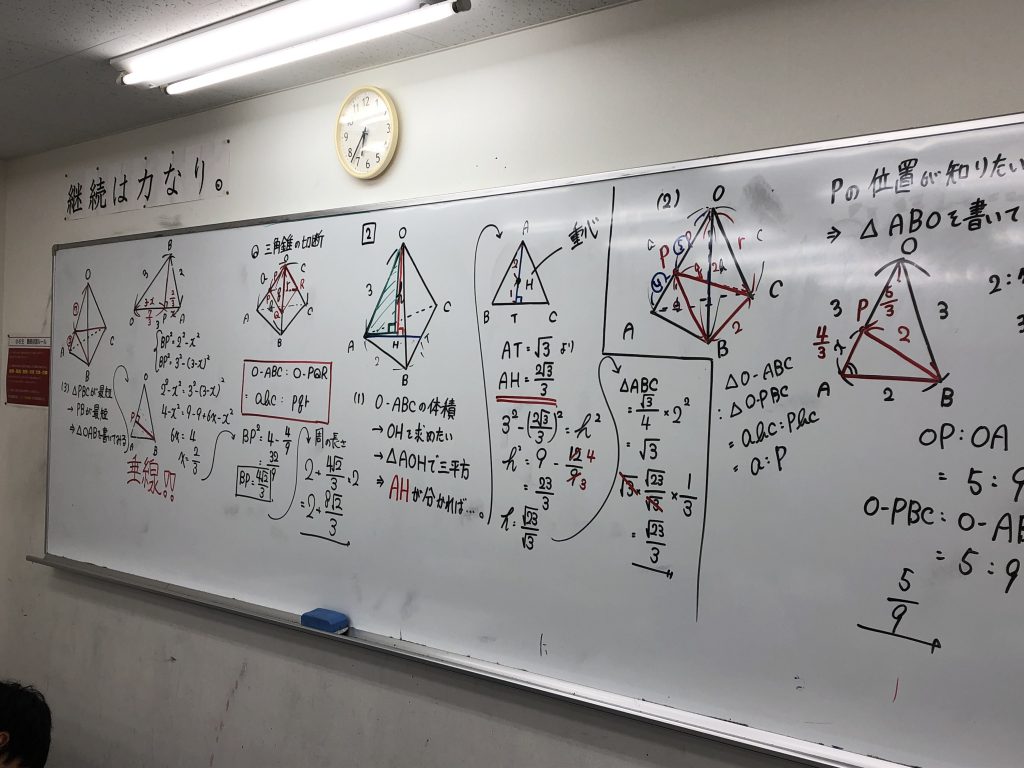 継続は力なり。
(3) △PBCが最短
→ PBが最短
→ △OABを書いてみる
垂線!!
BP²=2²-x²
BP²=3²-(3-x)²
2²-x²=3²-(3-x)²
4-x²=9-9+6x-x²
6x=4
x=2/3
◎ 三角錐の切断
O-ABC : O-PQR
= abc : pqr
BP²=4-4/9
=32/9
BP=4√2/3
周の長さ
2+4√2/3×2
=2+8√2/3
2
(1) O-ABCの体積
→ OHを求めたい
→ △AOHで三平方
⇒ AHが分かれば…。
重心
AT=√3 より
AH=2√3/3
3²-(2√3/3)²=h²
h²=9-12/9
=23/3
h=√23/√3
△ABC
=√3/4×2²
=√3
√3×√23/√3×1/3
=√23/3
(2)
△O-ABC
:△O-PBC
=abc:pbc
=a:p
Pの位置が知りたい
⇒ △ABOを書いて
OP:OA
=5:9
O-PBC:O-AB
=5:9
5/9